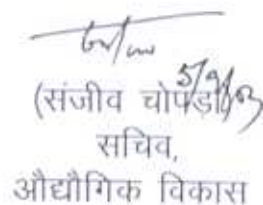 5/9/03
(संजीव चोपड़ा)
सचिव,
औद्योगिक विकास